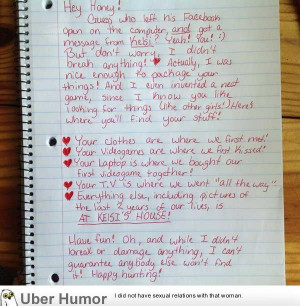 Hey Honey!
Guess who left his Facebook
open on the computer, and got a
message from Keisi? Yeah! You! :)
But don't worry, I didn't
break anything! ❤ Actually, I was
nice enough to package your
things! And I even invented a neat
game, since I know you like
looking for things like other girls! Here's
where you'll find your stuff!
❤ Your clothes are where we first met!
❤ Your Videogames are where we first kissed!
❤ Your Laptop is where we bought our
first videogame together!
❤ Your T.V is where we went "all the way".
❤ Everything else, including pictures of
the last 2 years of our lives, is
AT KEISI'S HOUSE!
Have fun! Oh, and while I didn't
break or damage anything, I can't
guarantee anybody else won't find
it! Happy hunting!
Uber Humor
I did not have sexual relations with that woman.